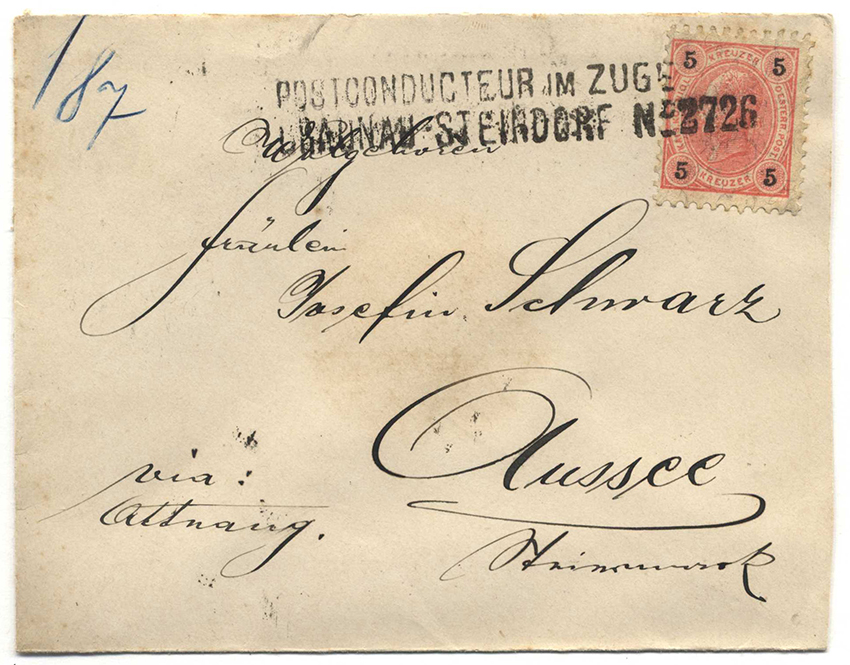 1/87
POSTCONDUCTEUR IM ZUGE
BRAUNAU-STEINDORF No 2726
5 KREUZER 5
5 KREUZER 5
Wohlgeboren
Fräulein
Josefin Schwarz
Aussee
via:
Attnang.
Steiermark